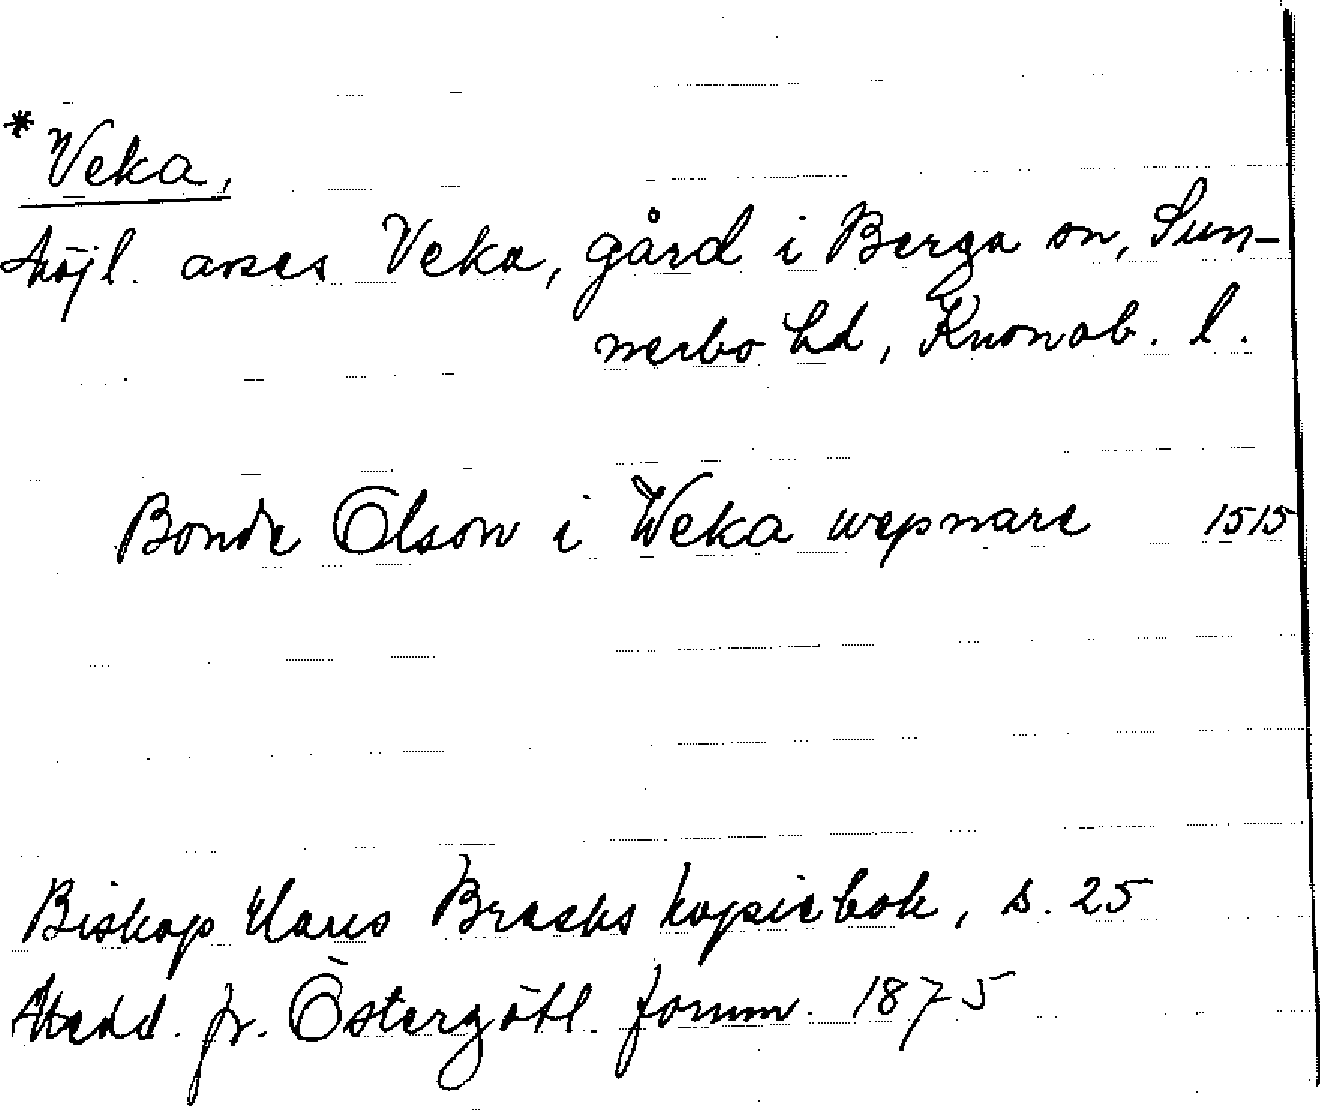 *Veka,
möjl. avses Veka, gård i Berga sn, Sun-
nerbo hd, Kronob. l.
Bonde Olson i Weka wepnare 1515
Biskop Hans Brasks kopiebok, s. 25
Medd. fr. Östergötl. fornm. 1875